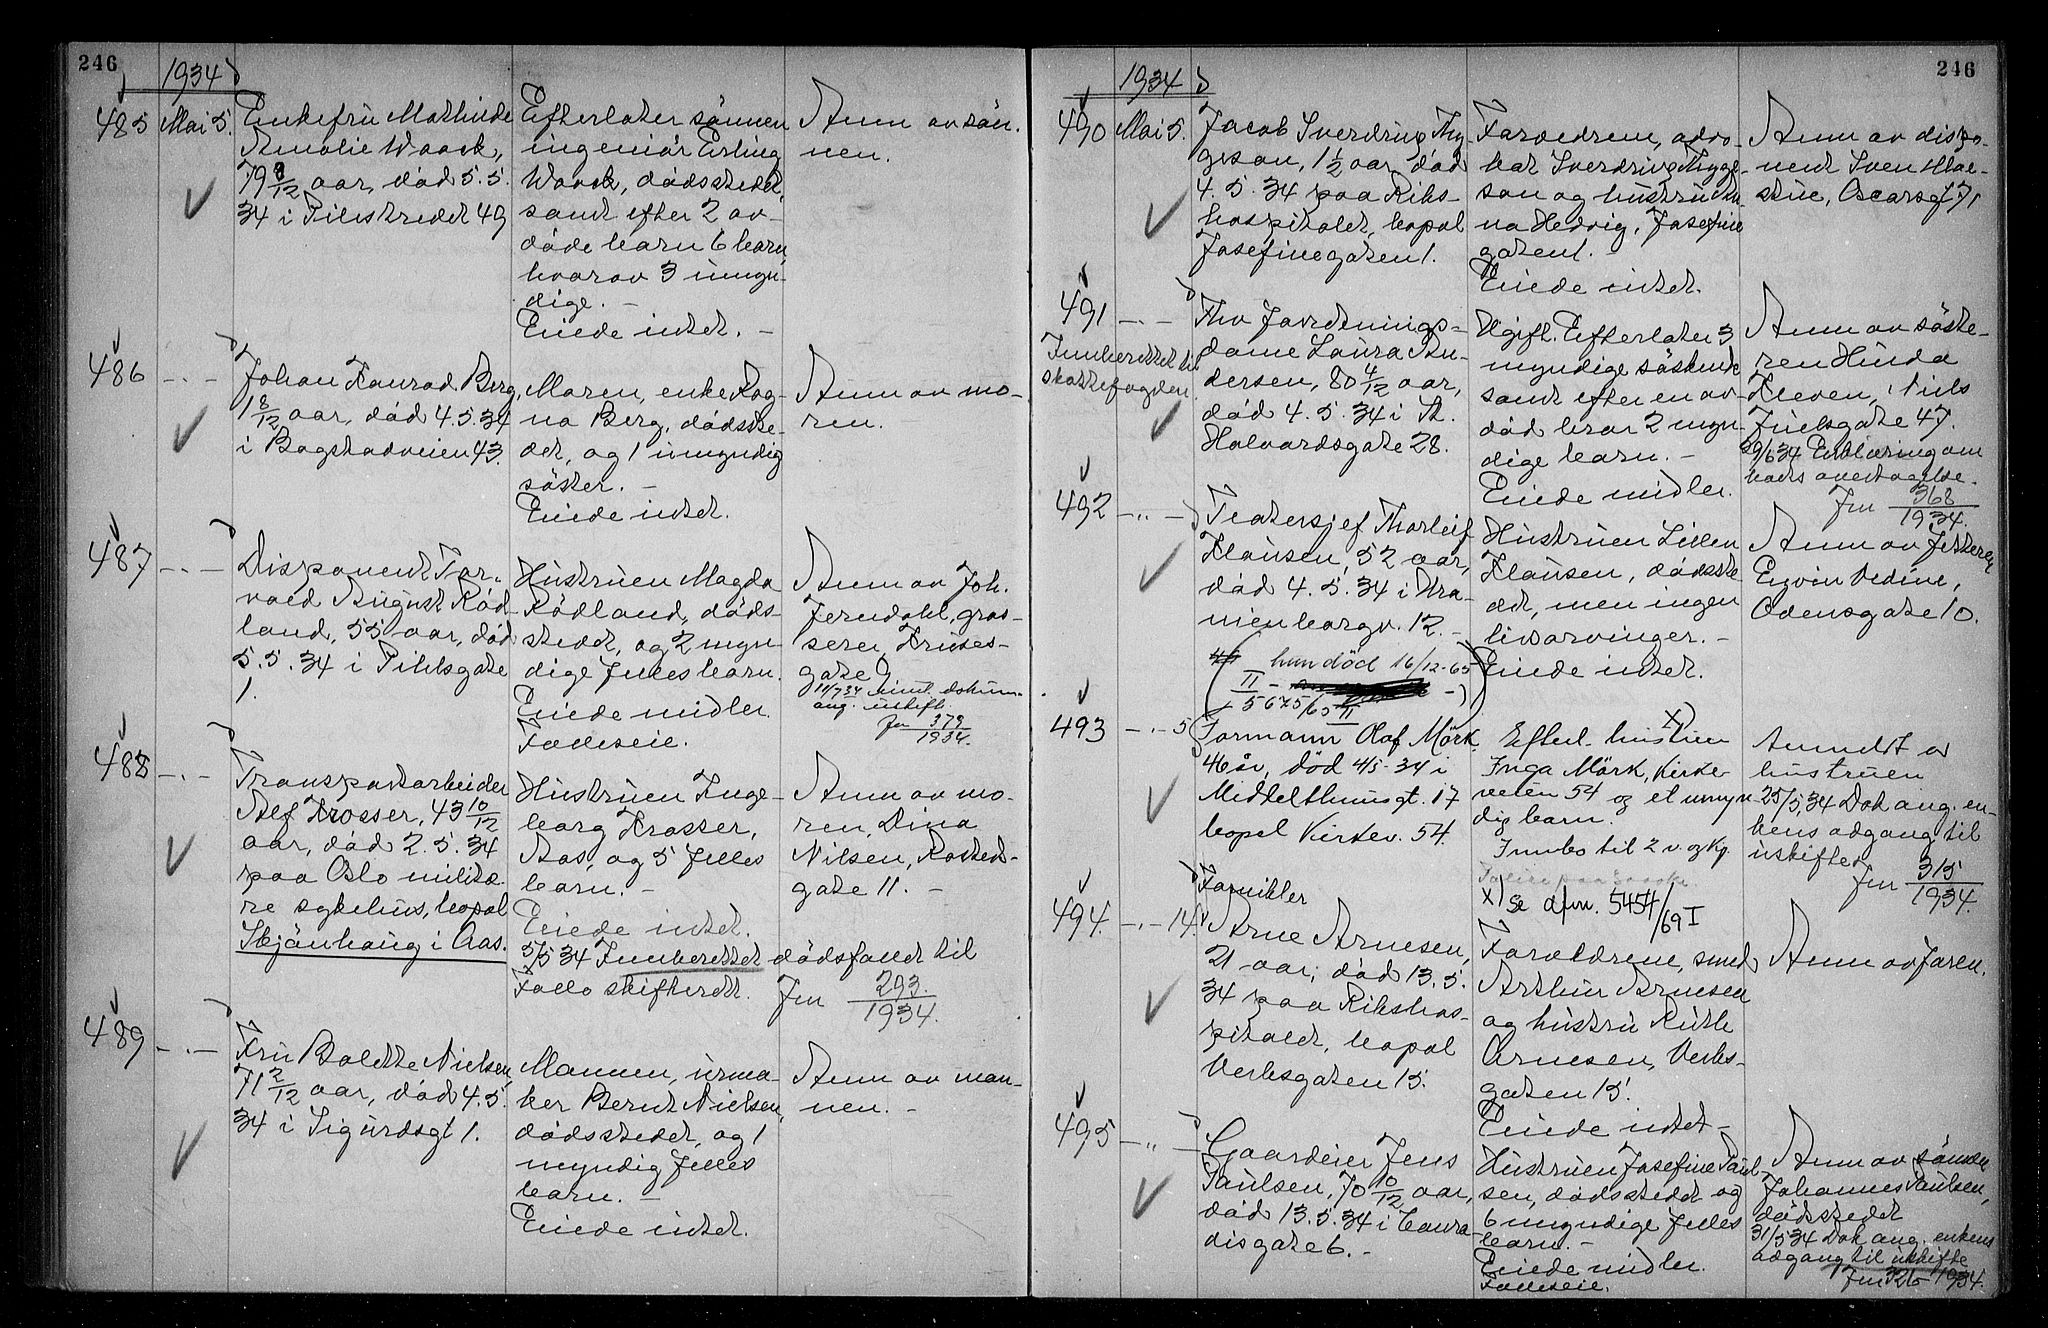 246
1934
485
Mai 5.
Enkefru Mathilde
Amalie Waack,
79 8/12 aar, död 5.5.
34 i Pilestredet 49
Efterlater sönnen
ingeniör Erling
Waack, dödsstedet,
samt efter 2 av-
döde barn 6 barn
hvorav 3 umyn-
dige. -
Eiede intet. -
Anm av sön-
nen.
486
Johan Konrad Berg,
1 8/12 aar, död 4.5.34
i Bogstadveien 43.
Moren, enke Rag-
na Berg, dödsste-
det, og 1 umyndig
söster. -
Eiede intet.
Anm av mo-
ren.
487
Disponent Tor-
vald August Röd-
land, 55 aar, död
5.5.34 i Pihlsgate
1.
Hustruen Magda
Rödland, döds-
stedet, og 2 myn-
dige felles barn.
Eiede midler.
Felleseie.
Anm av Joh.
Ferndahl, gros-
serer, Kruses-
gate 9
11/7 34 dokum.
ang. uskift.
Jnr 379
1934.
488
Transportarbeider
Alf Krosser, 43 10/12
aar, död 2.5.34
paa Oslo militæ-
re sykehus, bopæl
Skjönhaug i Aas.
Hustruen Inge-
borg Krosser,
Aas, og 5 felles
barn. -
Eiede intet.
5/5 34 Innberettet dödsfaldet til
Follo skifterett.
Jnr 293
1934.
Anm av mo-
ren, Dina
Nilsen, Rosted-
gate 11. -
489
Fru Bolette Nielsen,
71 2/12 aar, död 4.5.
34 i Sigurdsgt 1.
Mannen, urma-
ker Bernt Nielsen,
dödsstedet, og 1
myndig felles
barn. -
Eiede intet.
Anm av man-
nen. -
246
1934
490
Mai 5.
Jacob Sverdrup Thy-
geson, 1 1/2 aar, död
4.5.34 paa Riks-
hospitalet, bopæl
Josefinegaten 1.
Forældrene, advo-
kat Sverdrup Thyge-
son og hustru
Hedvig, Josefine
gaten 1. -
Eiede intet.
Anm av dispo-
nent Sven
Oscarsgt 71
491
Innberettet til
skattefogden
Fhv forretnings-
dame Laura An-
dersen, 80 4/12 aar,
död 4.5.34 i St.
Halvardsgate 28.
Ugift. Efterlater 3
myndige söskende
samt efter en av-
död bror 2 myn-
dige barn. -
Eiede midler.
Anm av söste-
ren Hulda
Kleven, Niels
Juelsgate 47.
29/6 34 Erklæring om
boets overtagelse.
Jnr 368
1934.
492
Teatersjef Thorleif
Klausen, 52 aar,
död 4.5.34 i Kra-
nienborgv. 12. -
hun död 16/12-65
II
5675/65 II
Hustruen Lillen
Klausen, dödsste-
det, men ingen
livsarvinger. -
Eiede intet.
Anm av fetteren
Eyvin Vedine,
Odensgate 10.
493
5
Formann Olaf Mörk
46 år, död 4/5-34 i
Middelthunsgt. 17
bopel Kirkev. 54.
Efterl. hustruen x)
Inga Mörk, Kirke-
veien 54 og et umyn-
dig barn.
Innbo til 2 v. og kj.
x) Se dfm. 5454/69 I
Anmeldt av
hustruen
25/5 34 Dok ang. en-
kens adgang til
uskifte.
Jnr 315
1934.
494.
14.
Fornikler
Arne Arnesen,
21 aar, död 13.5.
34 paa Rikshos-
pitalet, bopæl
Verksgaten 15.
Forældrene, smed
Arthur Arnesen
og hustru Ruth
Arnesen, Verks-
gaten 15.
Eiede intet -
Anm av faren.
495
Gaardeier Jens
Paulsen, 70 10/12 aar,
död 13.5.34 i Coura-
disgate 6. -
Hustruen Josefine Paul-
sen, dödsstedet og
6 myndige felles
barn. -
Eiede midler.
Felleseie.
Anm av sönnen
Johannes Paulsen,
dödsstedet
31/5 34 Dok ang. enkens
adgang til uskifte
Jnr 326 1934.